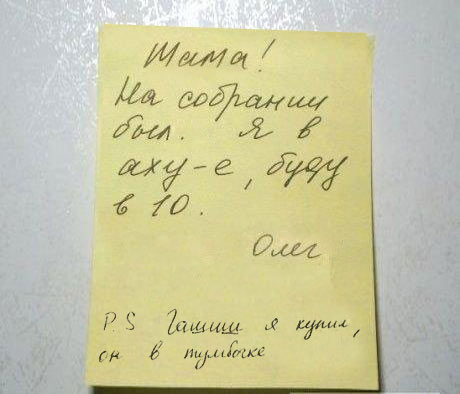 Мама!
На собрании
был. Я в
аху-е, буду
в 10.
Олег
P.S Гашиш я купил,
он в тумбочке